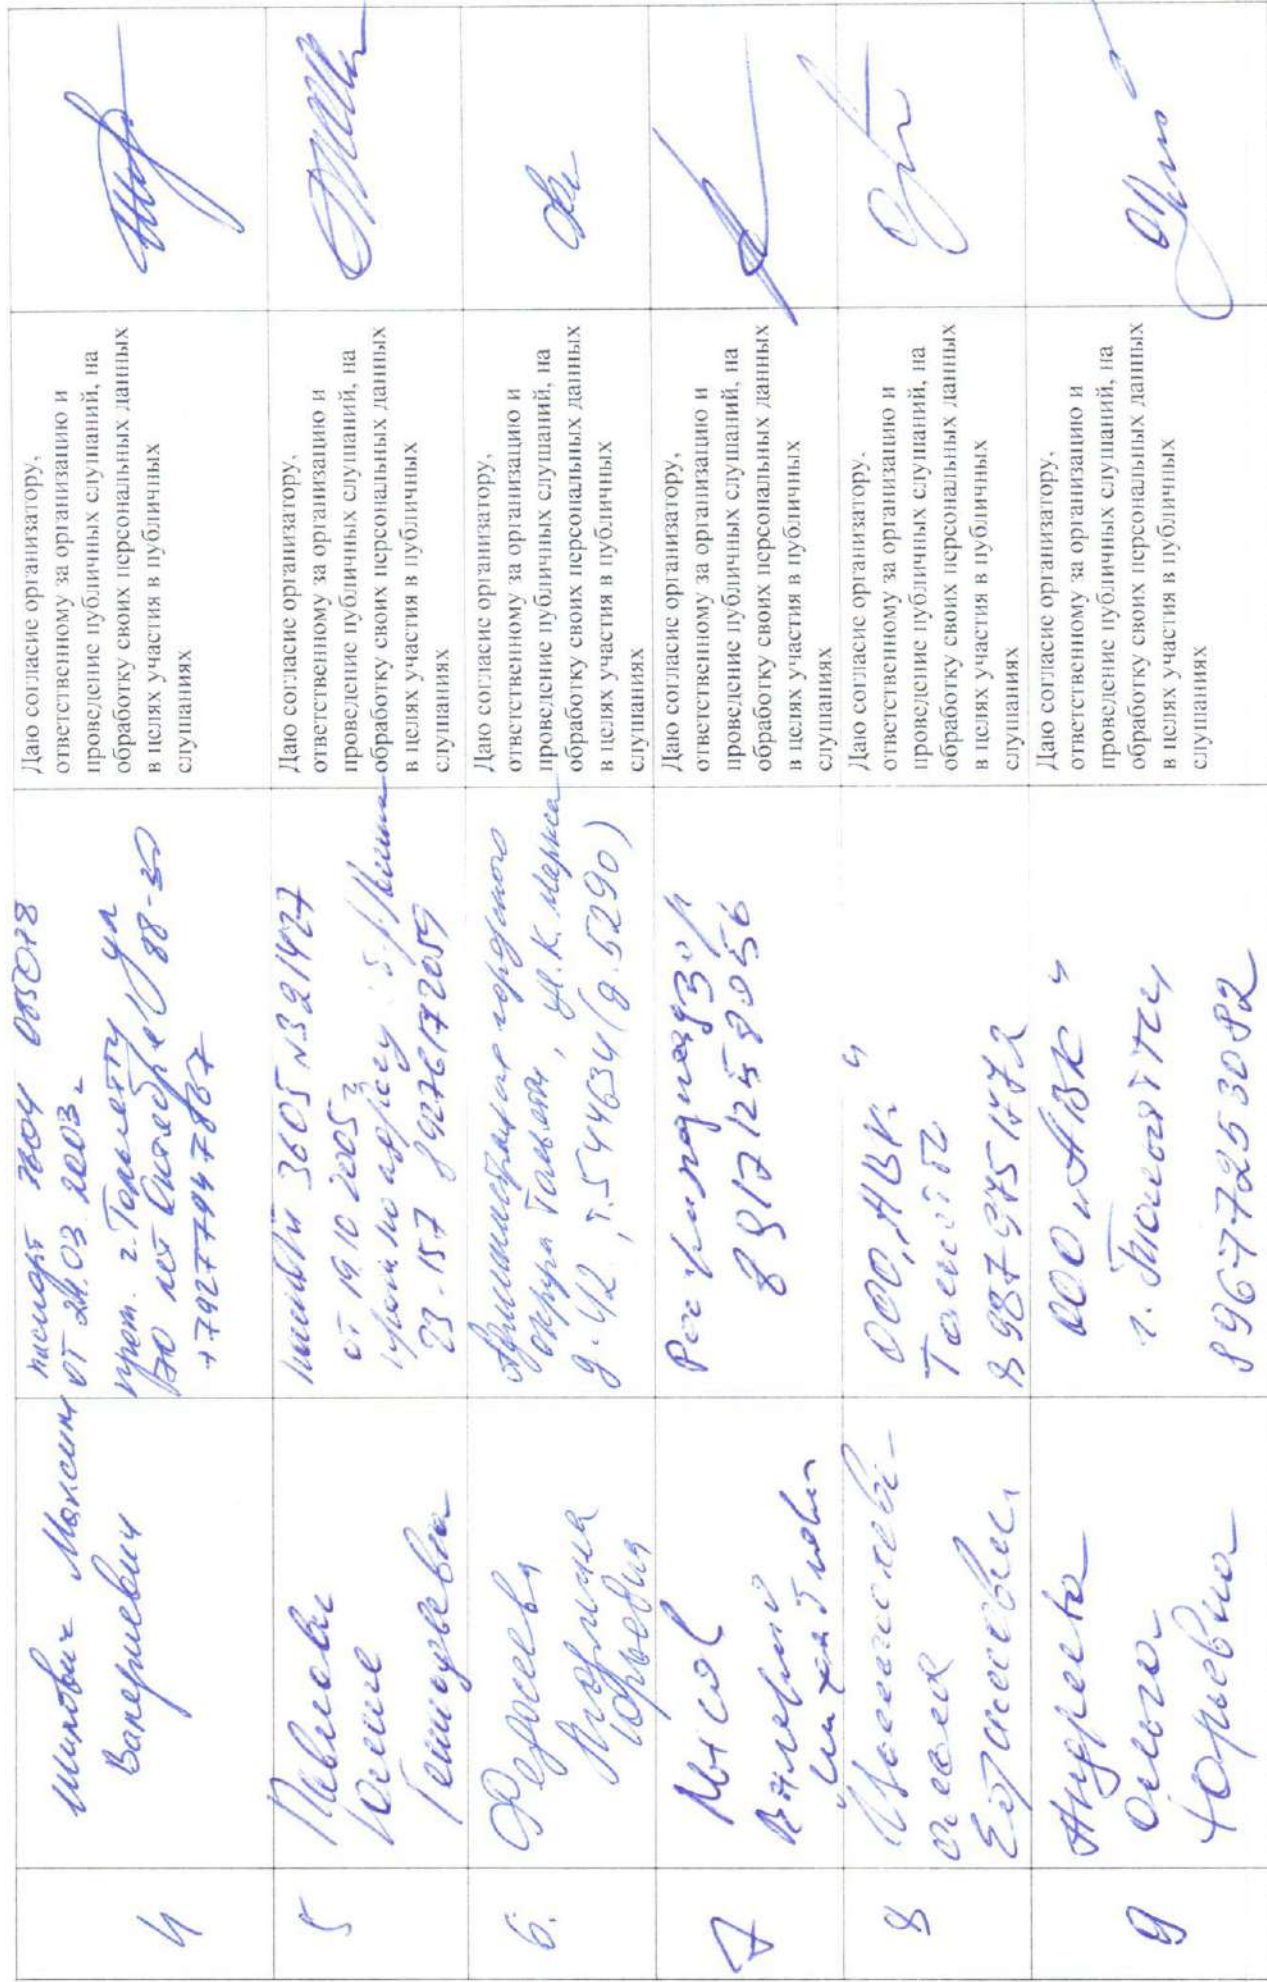 4
Шилович Максим
Валерьевич
паспорт 3604 085078
от 24.03.2003
г. Тольятти ул
50 лет Октября 88-
+79277947867
Даю согласие организатору,
ответственному за организацию и
проведение публичных слушаний, на
обработку своих персональных данных
в целях участия в публичных
слушаниях
5
Павлова
Юлия
Геннадьевна
3605 N321427
от 19.10.2005
по адресу
23-157 89276172059
Даю согласие организатору,
ответственному за организацию и
проведение публичных слушаний, на
обработку своих персональных данных
в целях участия в публичных
слушаниях
6.
Федосеева
Юрьевна
Администрация городского
округа Тольятти, К. Маркса
д. 42, т. 544634 (д. 5290)
Даю согласие организатору,
ответственному за организацию и
проведение публичных слушаний, на
обработку своих персональных данных
в целях участия в публичных
слушаниях
7
Росприроднадзор
89171258056
Даю согласие организатору,
ответственному за организацию и
проведение публичных слушаний, на
обработку своих персональных данных
в целях участия в публичных
слушаниях
8
ООО "АВК"
Тольятти
89879751772
Даю согласие организатору,
ответственному за организацию и
проведение публичных слушаний, на
обработку своих персональных данных
в целях участия в публичных
слушаниях
9
Андреева
Ольга
Юрьевна
ООО "АВК"
г. Тольятти,
89677253082
Даю согласие организатору,
ответственному за организацию и
проведение публичных слушаний, на
обработку своих персональных данных
в целях участия в публичных
слушаниях